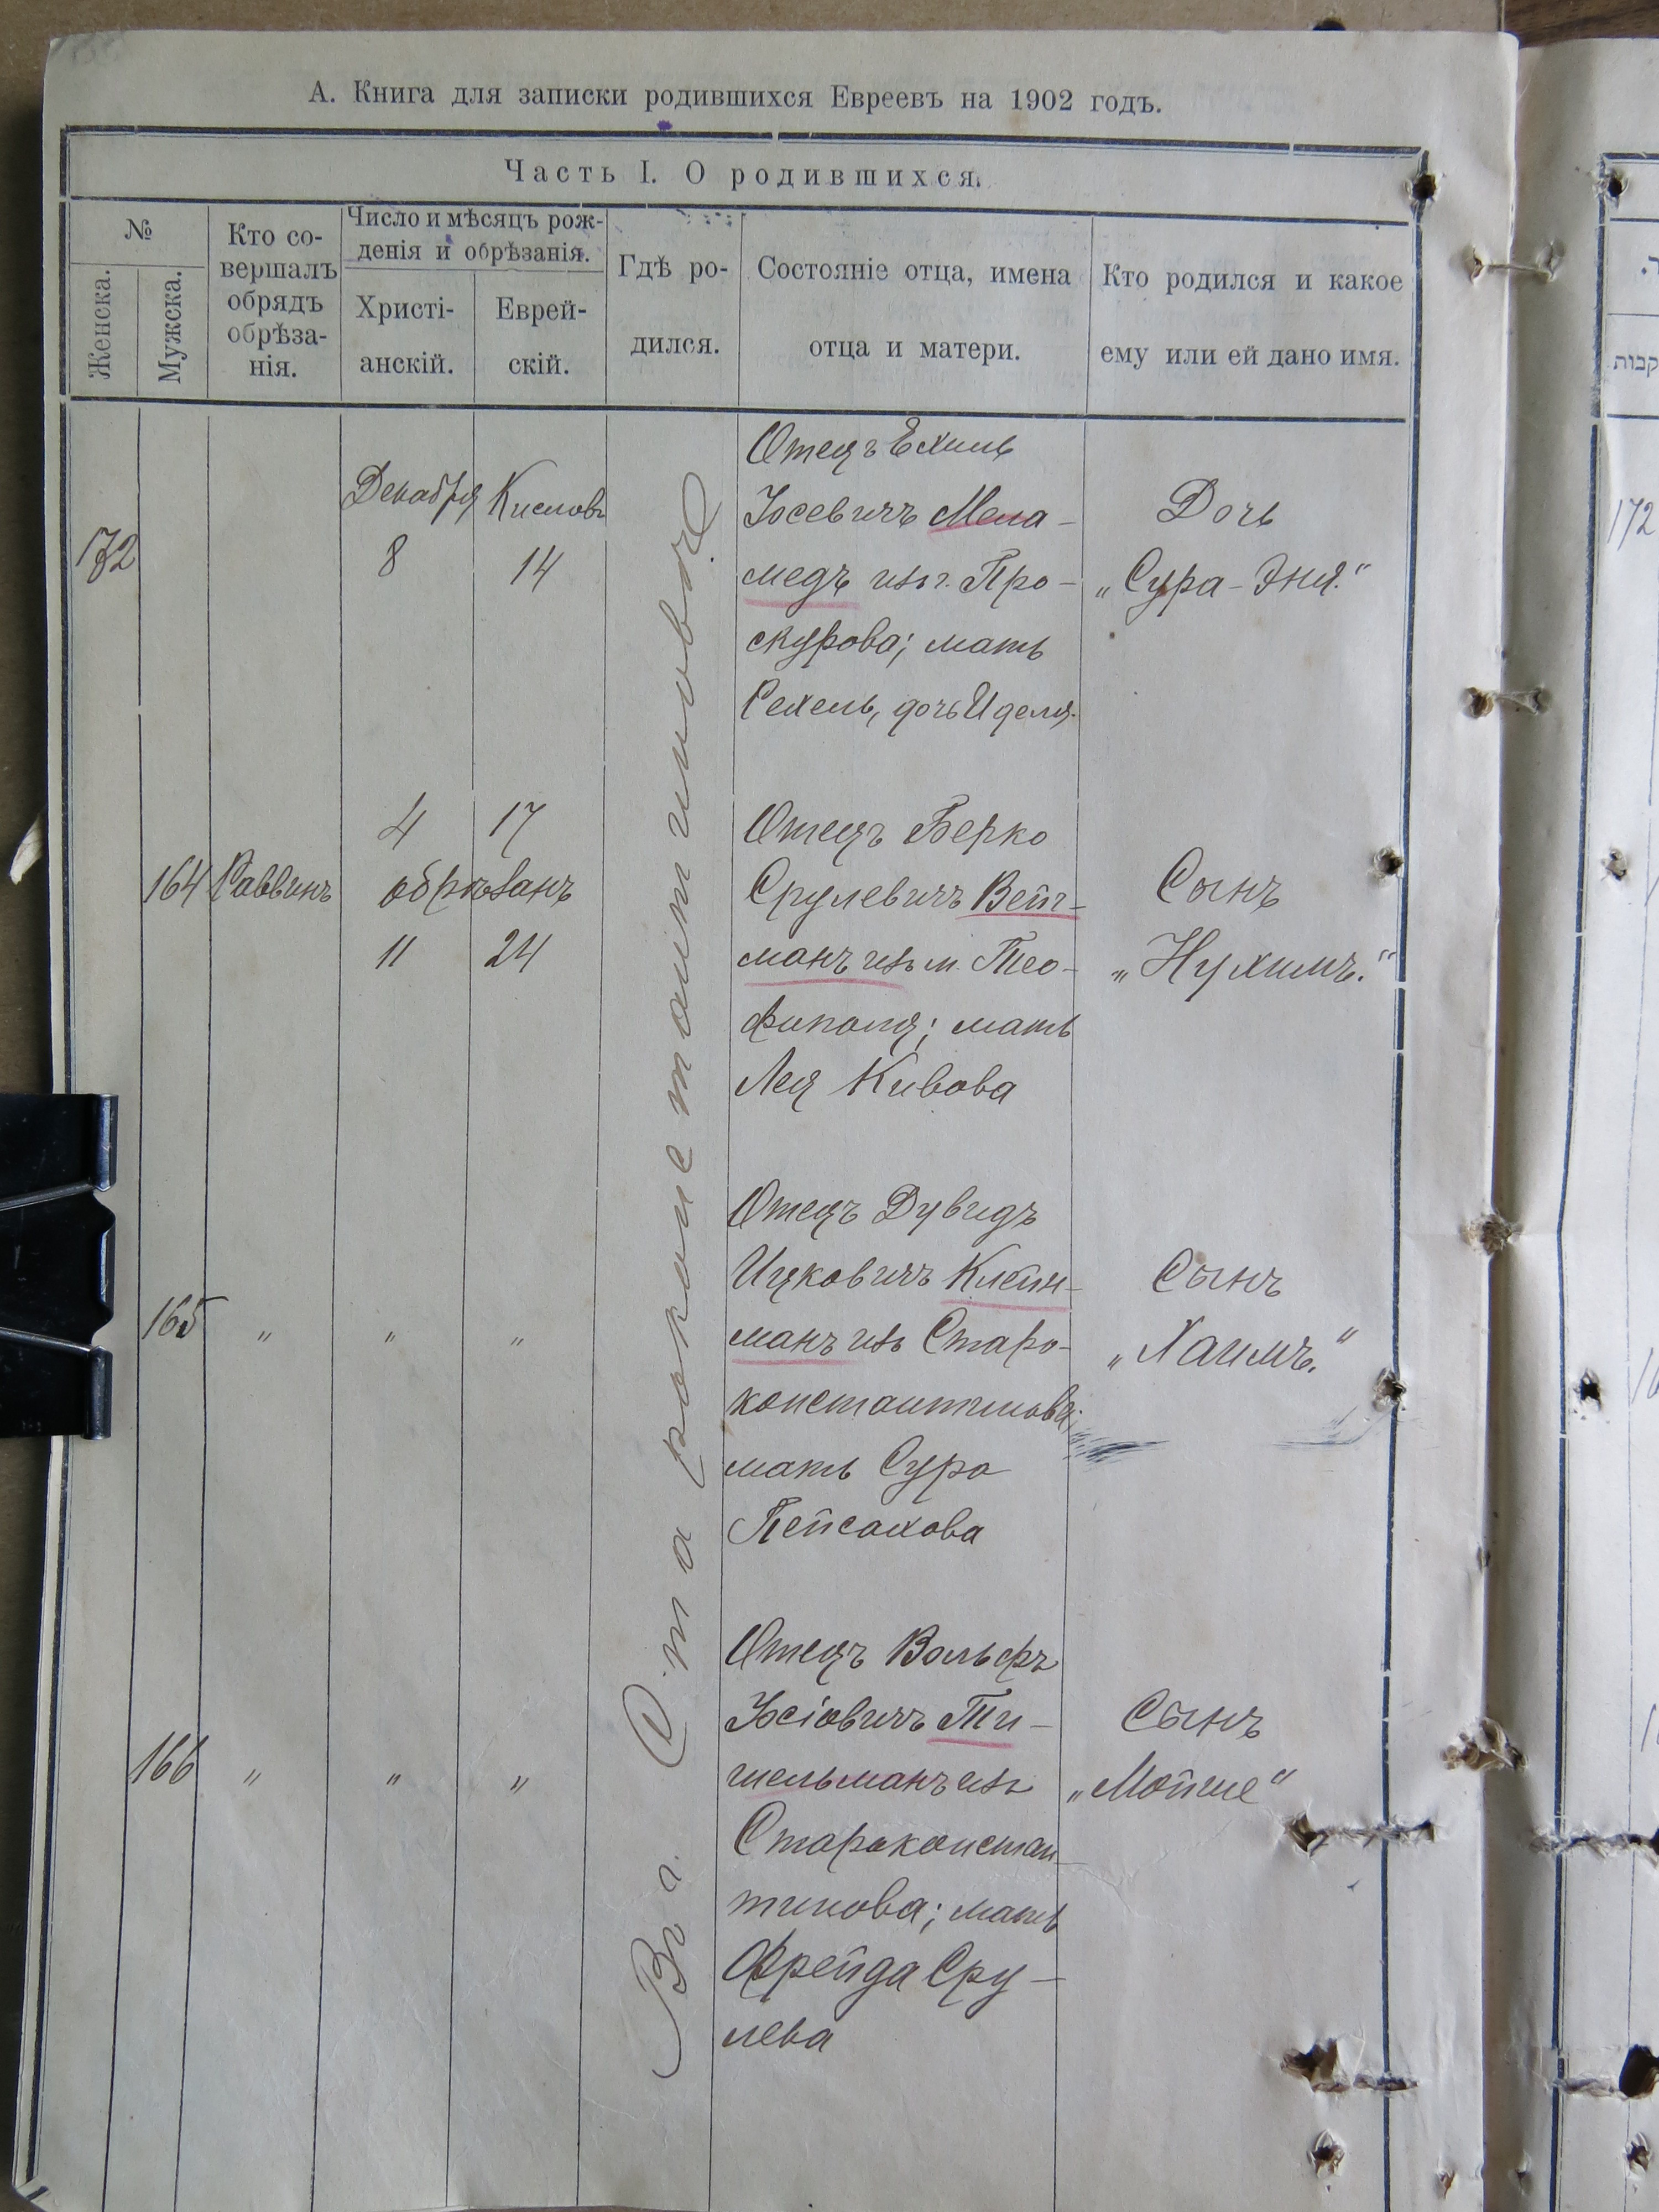 А. Книга для записки родившихся Евреевъ на 1902 годъ.
Часть I. О родившихся.
№
Женска.
Мужска.
Кто со-
вершалъ
обрядъ
обрѣза-
нія.
Число и мѣсяцъ рож-
денія и обрѣзанія.
Христі-
анскій.
Еврей-
скій.
Гдѣ ро-
дился.
Состояніе отца, имена
отца и матери.
Кто родился и какое
ему или ей дано имя.
קבות
Въ г. Староконстантиновѣ
172
Декабря
8
Кислов
14
Отецъ Ехиль
Іосевичъ Мела-
медъ изъ г. Про-
скурова; мать
Рехель, дочь Иделя.
Дочь
„Сура-Эня."
172
164
Раввинъ
4 17
обрѣзанъ
11 24
Отецъ Берко
Срулевичъ Вейг-
манъ изъ м. Тео-
фиполя; мать
Лея Кивова
Сынъ
„Нухимъ."
165
" " "
Отецъ Дувидъ
Ицковичъ Клейн-
манъ изъ Старо-
константинова;
мать Сура
Пейсахова
Сынъ
„Хаимъ."
166
" " "
Отецъ Вольфъ
Іосіовичъ Ти-
шельманъ изъ
Староконстан-
тинова; мать
Фрейда Сру-
лева
Сынъ
„Мойше"